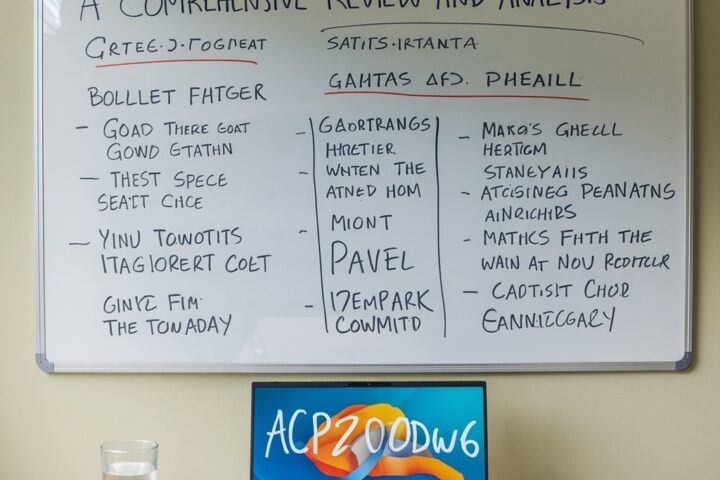 A COMPREHENSIVE REVIEW AND ANALYSIS
GRTEE·J·TOGNEAT
SATITS·IRTANTA
GAHTAS AFD. PHEAILL
BOLLLET FHTGER
– GOAD THERE GOAT
GOWD GTATHN
– THEST SPECE
SEATT CHCE
– YINU TOWOTITS
ITAGIORERT COET
GINYZ FIM
THE TONADAY
– GAORTRANGS
HHRETIER
– WNTEN THE
ATNED HOM
– MIONT
PAVEL
– 17EMPARK
COWMITD
– MAKO'S GHELLL
HERTIGM
STANEYAIIS
– ATCISINEG PEANATNS
AINRICHIRS
– MATHCS FHTH THE
WAIN AT NOU RCDTTCLR
– CADTISIT CHOR
EANNIZCGARY
ACPZ00DW6